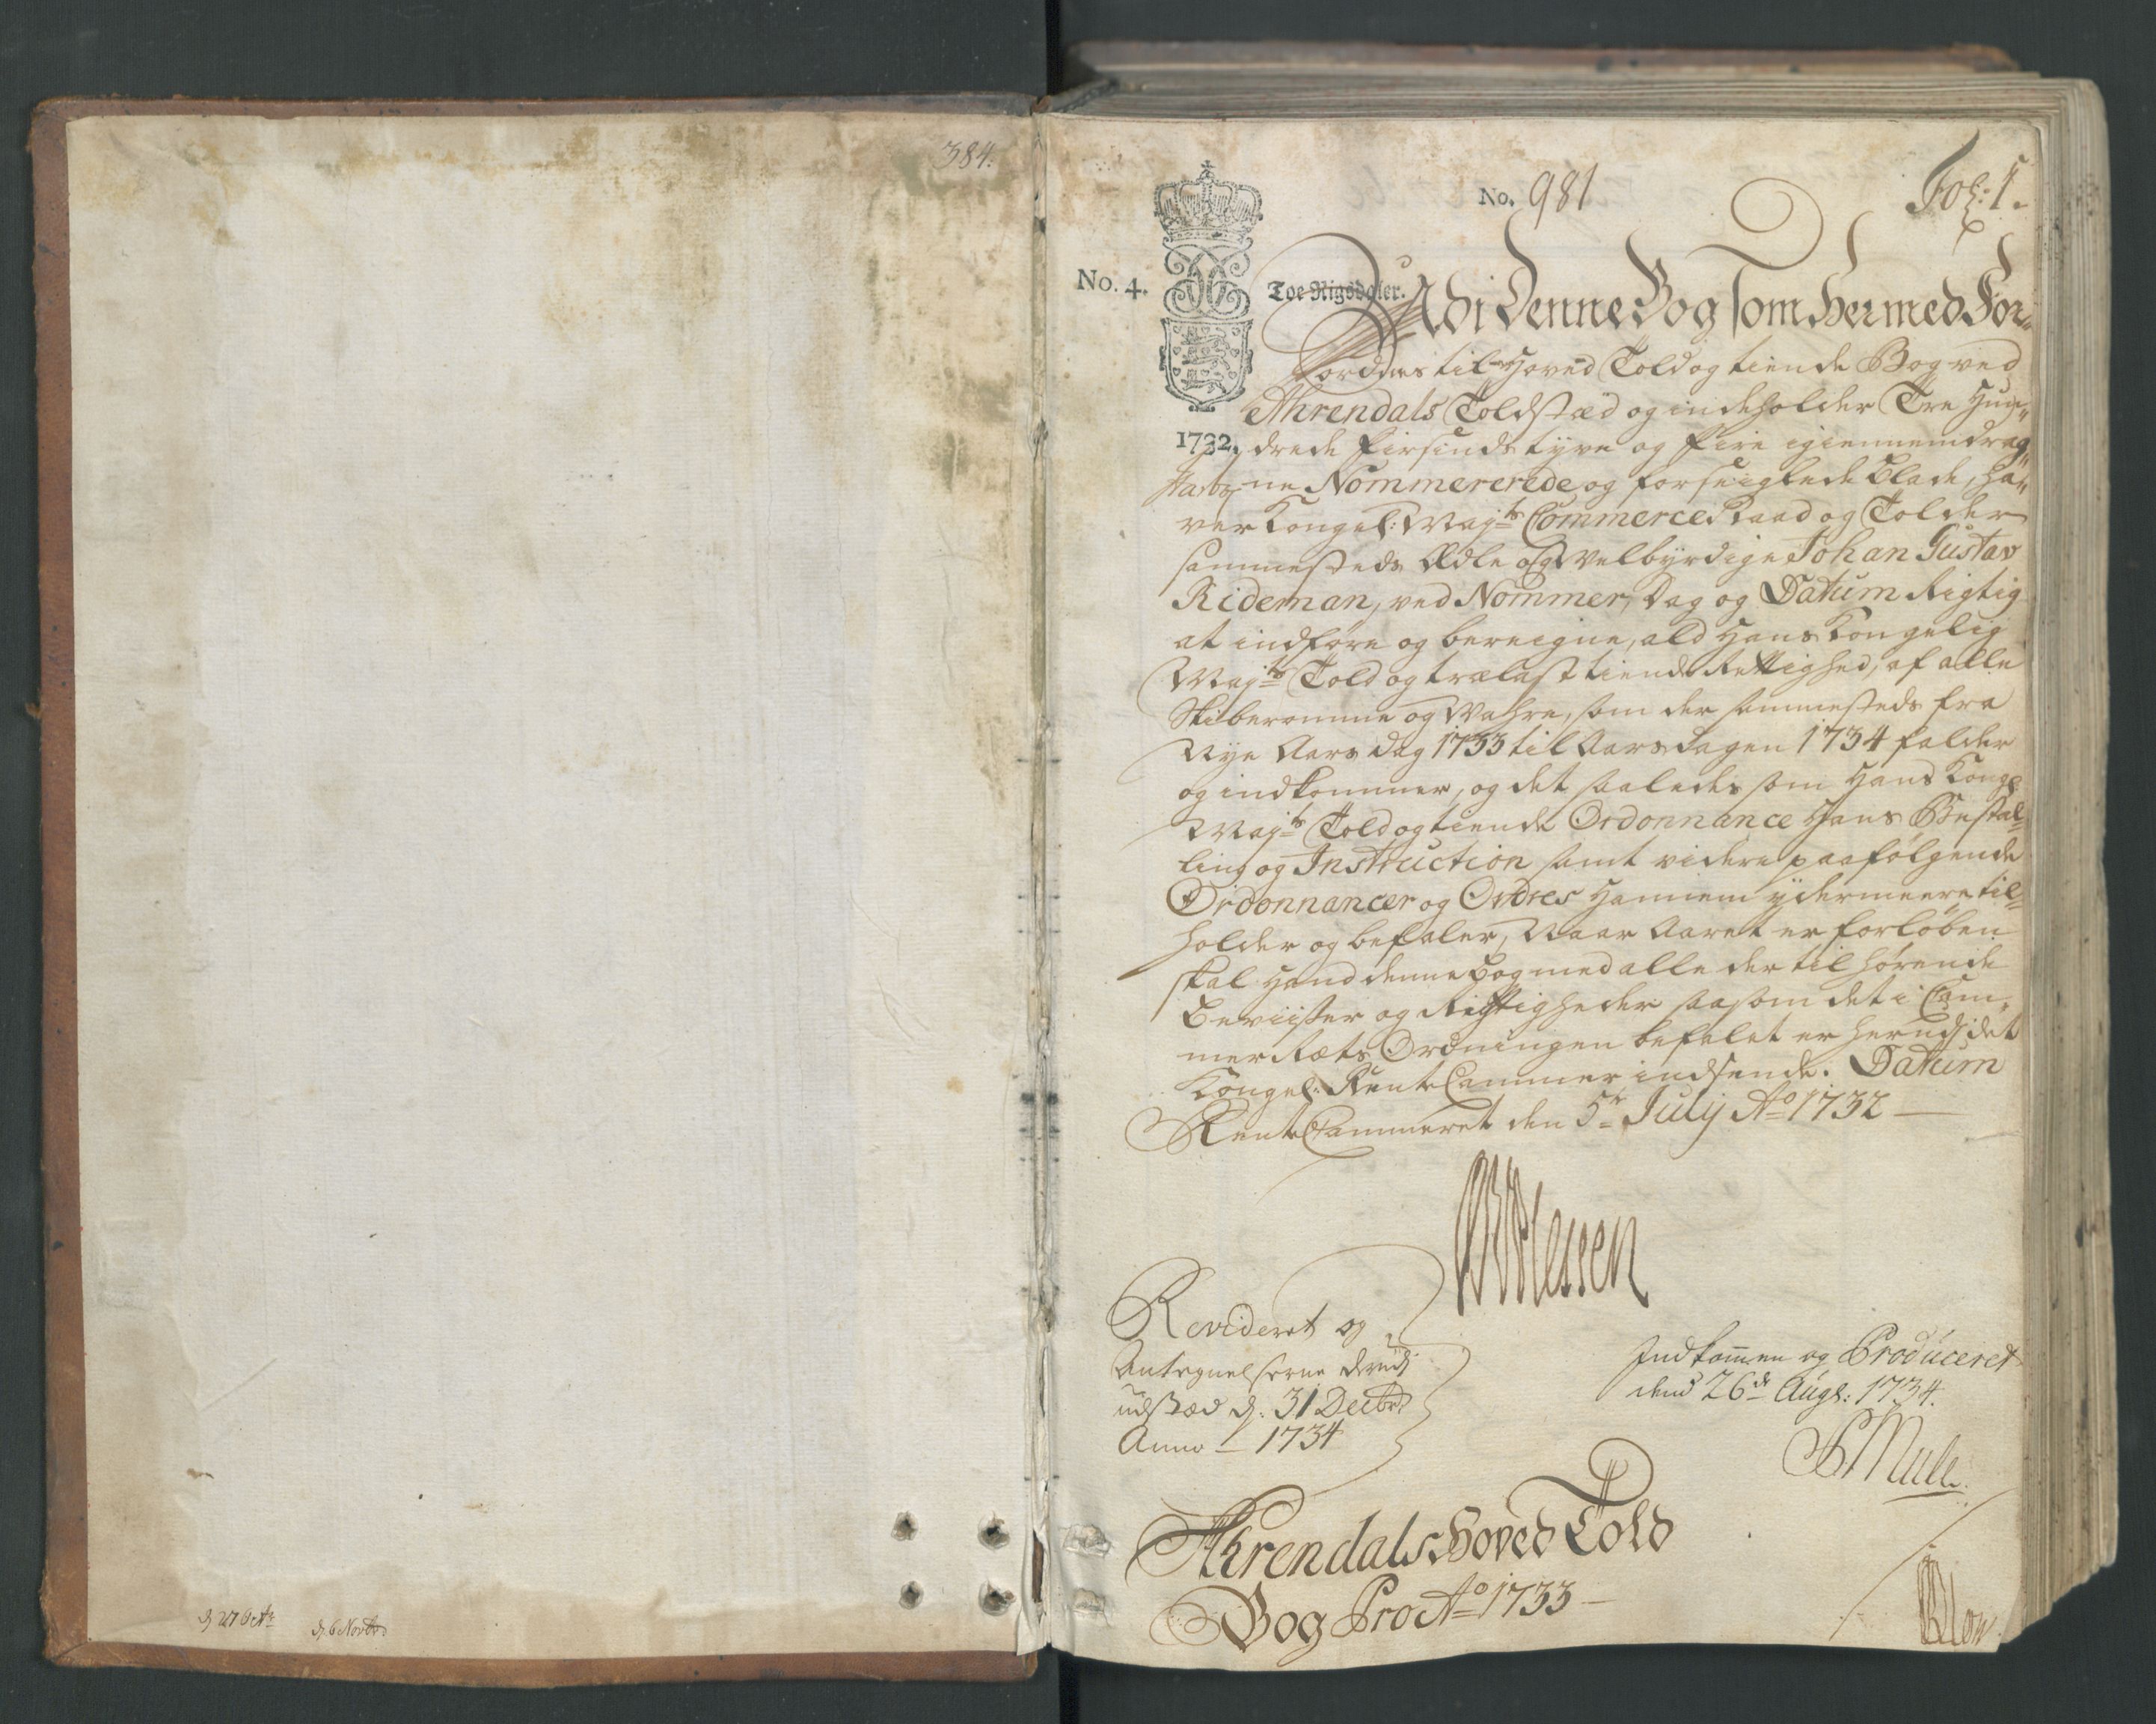 384.
No. 981
Fol: 1.
No. 4.
Toe Rigsdaler.
Udi Denne Bog som Hermed For-
ordnes til Hoved Told og tiende Bog ved
Ahrendals Toldstæd og indeholder Tre Hun-
1732.
drede Fiirsindstyve og Fire igiennemdrag-
ne Nommererede og forseiglede Blade, ha-
ver Kongel: May:ts Commerceraad og Tolder
sammesteds Ædle og Welbyrdige Johan Gustav
Rideman, ved Nommer, Dag og Datum Rigtig
at indføre og beregne, ald Hans Kongelig
May:ts Told og trælast tiende Rettighed, af alle
Skiberomme og Wahre, som der sammesteds fra
Nye Aars dag 1733 til Aarsdagen 1734 falder
og indkommer, og det saaledes som Hans Kongl
May:ts Told og tiende Ordonnance Hans Bestal-
ling og Instruction samt videre paafølgende
Ordonnancer og Ordres Hannem ydermeere til-
holder og befaler, Naar Aaret er forløben
skal Hand denne Bog med alle der til hørende
Beviisser og Rigtigheder saasom det i Cam-
mer Rets Ordningen befalet er herud i det
Kongel: Rente Cammer indsende. Datum
Rente Cammeret den 5te July Ao 1732
Plessen
Revideret og
Antegnelserne derudi
udstæd d. 31 Decbr
Anno - 1734
Indkommen og Produceret
dend 26de Aug: 1734.
Mule
Ahrendals Hoved Told
Bog Pro Ao 1733
d. 6 Novbr